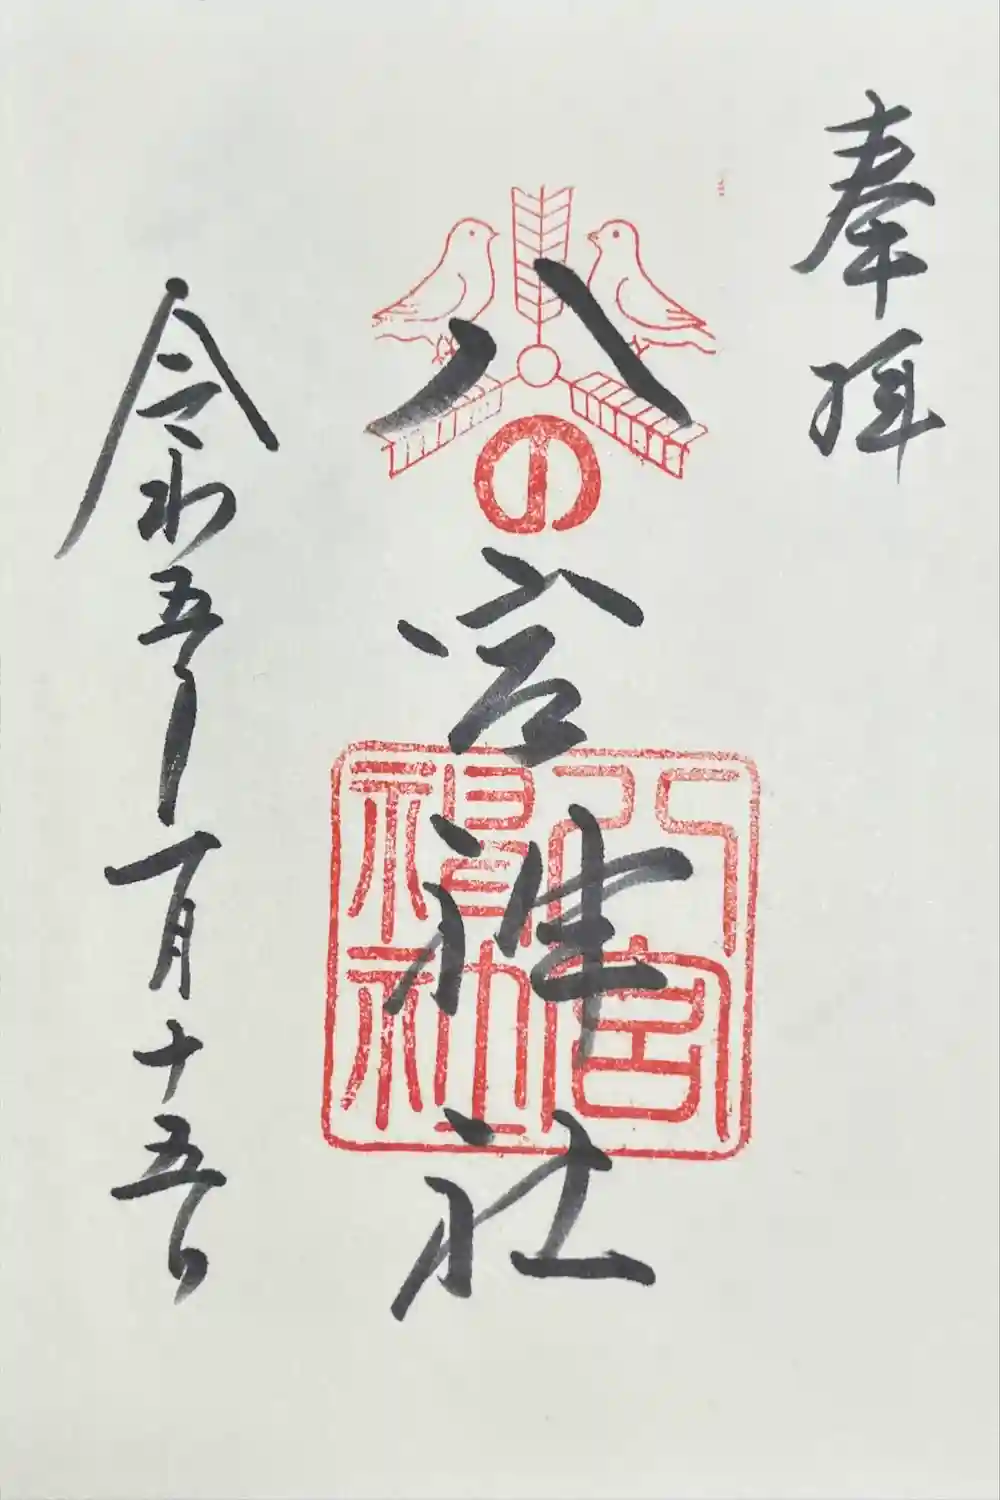 奉拝
八宮神社
の
八宮神社
令和五年一月十五日